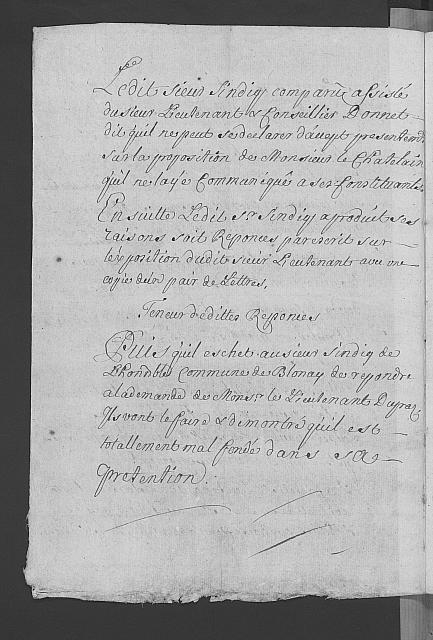 Ledit sieur Sindiq comparu assisté
du sieur Lieutenant & Conseillier Donnet
dit quil ne peut se declarer d'avept presentem.
sur la proposition de Monsieur le Chatelain
quil ne laye Communiqué a ses Constituants.
En suitte Ledit Sr. Sindiq a produit ses
raisons soit Reponces par escrit sur
lexposition dudit sieur Lieutenant avec une
copie dun pair de Lettres,
Teneur d'edittes Reponces
Puis quil eschet au sieur Sindiq de
Lhonnble Commune de Blonay de repondre
a la demande de Monsr. le Lieutenant Dupraz
Ils vont le faire & demontré quil est
totallement mal fondé dans sa
pretention.